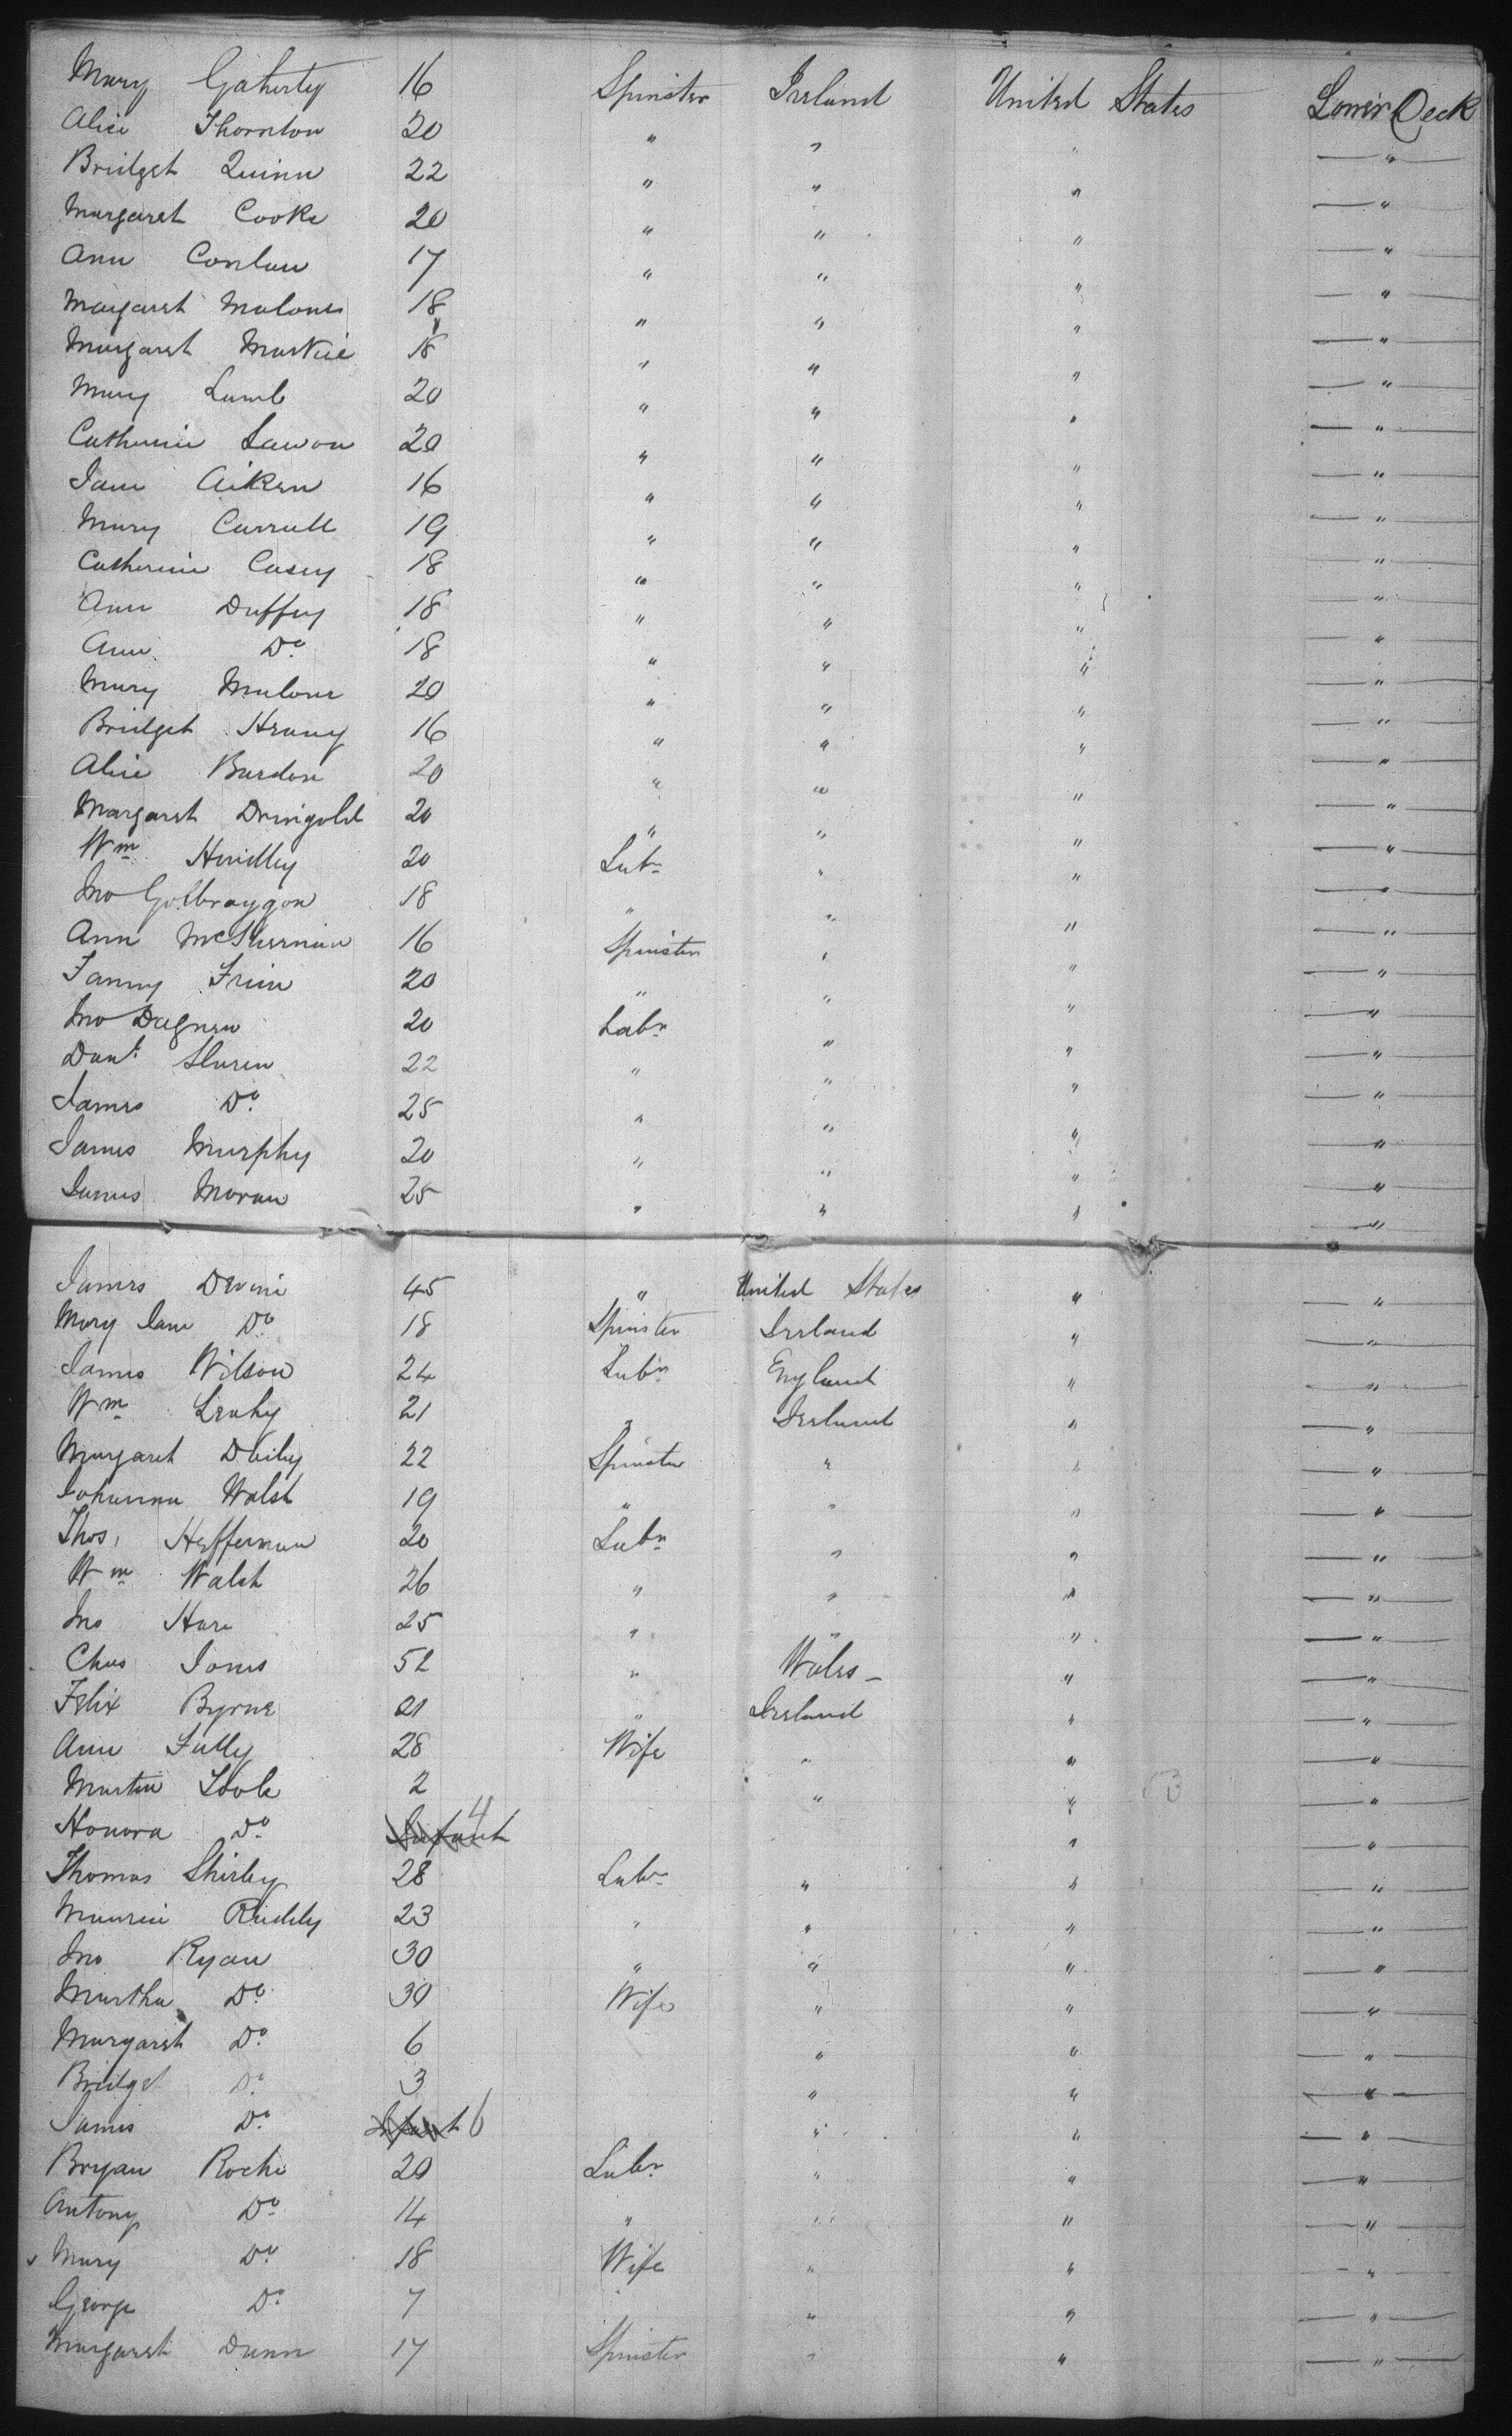 Mary Gaherty 16 Spinster Ireland United States Lower Deck
Alice Thornton 20 " " " — " —
Bridget Quinn 22 " " " — " —
Margaret Cooke 20 " " " — " —
Ann Conlan 17 " " " — " —
Margaret Malones 18 " " " — " —
Margaret 18 " " " — " —
Mary Lamb 20 " " " — " —
Catherine 20 " " " — " —
Jane Aiken 16 " " " — " —
Mary Carroll 19 " " " — " —
Catherine Casey 18 " " " — " —
Ann Duffy 18 " " " — " —
Ann Do. 18 " " " — " —
Mary Malone 20 " " " — " —
Bridget Heany 16 " " " — " —
Alice Burdon 20 " " " — " —
Margaret Dringold 20 " " " — " —
Wm Hindley 20 Labr " " — " —
Jno 18 " " " — " —
Ann McShernian 16 Spinster " " — " —
Fanny Frim 20 " " " — " —
Jno Dagnew 20 Labr " " — " —
Danl. 22 " " " — " —
James Do. 25 " " " — " —
James Murphy 20 " " " — " —
James Moran 25 " " " — " —
James Devine 45 " United States " — " —
Mary Jane Do. 18 Spinster Ireland " — " —
James Wilson 24 Labr England " — " —
Wm Leahy 21 " Ireland " — " —
Margaret 22 Spinster " " — " —
Johanna Walsh 19 " " " — " —
Thos. Heffernan 20 Labr " " — " —
Wm Walsh 26 " " " — " —
Jno Hare 25 " " " — " —
Chas Jones 52 " Wales — " — " —
Felix Byrne 21 " Ireland " — " —
Ann Tully 28 Wife " " — " —
Martin Toole 2 " " — " —
Honora Do. Infant 4 " — " —
Thomas Shirley 28 Labr " " — " —
Maurice Ruddy 23 " " " — " —
Jno Ryan 30 " " " — " —
Martha Do. 30 Wife " " — " —
Margaret Do. 6 " " — " —
Bridget Do. 3 " " — " —
James Do. Infant 6 " " — " —
Bryan Roche 20 Labr " " — " —
Antony Do. 14 " " " — " —
Mary Do. 18 Wife " " — " —
George Do. 7 " " — " —
Margaret Dunn 17 Spinster " " — " —